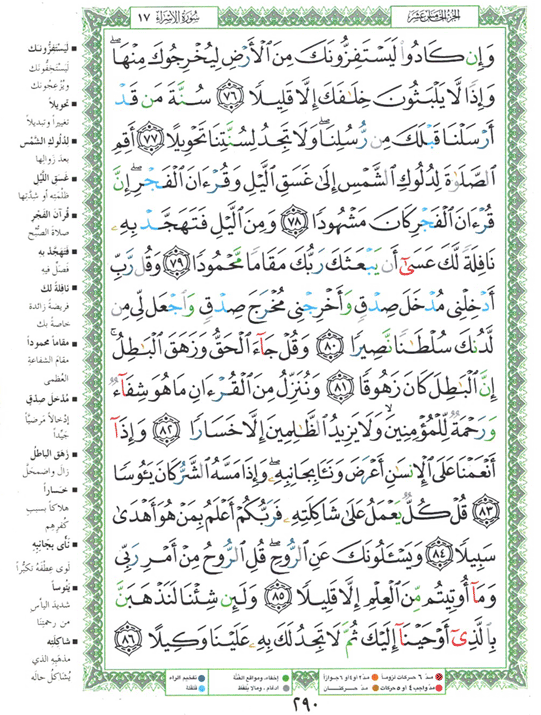 الجزء الخامس عشر
سورة الإسراء ١٧
وَإِن كَادُوا۟ لَيَسْتَفِزُّونَكَ مِنَ ٱلْأَرْضِ لِيُخْرِجُوكَ مِنْهَا ۖ
وَإِذًا لَّا يَلْبَثُونَ خِلَـٰفَكَ إِلَّا قَلِيلًا ٧٦ سُنَّةَ مَن قَدْ
أَرْسَلْنَا قَبْلَكَ مِن رُّسُلِنَا ۖ وَلَا تَجِدُ لِسُنَّتِنَا تَحْوِيلًا ٧٧ أَقِمِ
ٱلصَّلَوٰةَ لِدُلُوكِ ٱلشَّمْسِ إِلَىٰ غَسَقِ ٱلَّيْلِ وَقُرْءَانَ ٱلْفَجْرِ ۖ إِنَّ
قُرْءَانَ ٱلْفَجْرِ كَانَ مَشْهُودًا ٧٨ وَمِنَ ٱلَّيْلِ فَتَهَجَّدْ بِهِۦ
نَافِلَةً لَّكَ عَسَىٰٓ أَن يَبْعَثَكَ رَبُّكَ مَقَامًا مَّحْمُودًا ٧٩ وَقُل رَّبِّ
أَدْخِلْنِى مُدْخَلَ صِدْقٍ وَأَخْرِجْنِى مُخْرَجَ صِدْقٍ وَٱجْعَل لِّى مِن
لَّدُنكَ سُلْطَـٰنًا نَّصِيرًا ٨٠ وَقُلْ جَآءَ ٱلْحَقُّ وَزَهَقَ ٱلْبَـٰطِلُ ۚ
إِنَّ ٱلْبَـٰطِلَ كَانَ زَهُوقًا ٨١ وَنُنَزِّلُ مِنَ ٱلْقُرْءَانِ مَا هُوَ شِفَآءٌ
وَرَحْمَةٌ لِّلْمُؤْمِنِينَ ۙ وَلَا يَزِيدُ ٱلظَّـٰلِمِينَ إِلَّا خَسَارًا ٨٢ وَإِذَآ
أَنْعَمْنَا عَلَى ٱلْإِنسَـٰنِ أَعْرَضَ وَنَـَٔا بِجَانِبِهِۦ ۖ وَإِذَا مَسَّهُ ٱلشَّرُّ كَانَ يَـُٔوسًا
٨٣ قُلْ كُلٌّ يَعْمَلُ عَلَىٰ شَاكِلَتِهِۦ فَرَبُّكُمْ أَعْلَمُ بِمَنْ هُوَ أَهْدَىٰ
سَبِيلًا ٨٤ وَيَسْـَٔلُونَكَ عَنِ ٱلرُّوحِ ۖ قُلِ ٱلرُّوحُ مِنْ أَمْرِ رَبِّى
وَمَآ أُوتِيتُم مِّنَ ٱلْعِلْمِ إِلَّا قَلِيلًا ٨٥ وَلَئِن شِئْنَا لَنَذْهَبَنَّ
بِٱلَّذِىٓ أَوْحَيْنَآ إِلَيْكَ ثُمَّ لَا تَجِدُ لَكَ بِهِۦ عَلَيْنَا وَكِيلًا ٨٦
■ لَيَسْتَفِزُّونَكَ
لَيَسْتَخِفُّونَكَ
ويُزْعِجُونَك
■ تَحْوِيلاً
تغييراً وتبديلاً
■ لِدُلُوكِ الشَّمْسِ
بعد زوالها
■ غَسَقِ اللَّيْل
ظلْمَتِه أو شِدَّتِها
■ قُرآنَ الفَجْر
صلاةَ الصُّبْح
■ فَتَهَجَّدْ بِه
فَصَلِّ فيه
■ نَافِلَةً لك
فريضةً زائدة
خاصةً بك
■ مَقَاماً محموداً
مقامَ الشفاعةِ
العُظْمى
■ مُدْخَلَ صِدْقٍ
إدْخالاً مَرْضيّاً
جَيِّداً
■ زَهَقَ الباطلُ
زال واضْمَحَلَّ
■ خَسَاراً
هلاكاً بسببِ
كُفْرِهِم
■ نَأَى بِجَانِبِهِ
لَوَى عِطْفَهُ تَكَبُّراً
■ يَئُوساً
شديدَ اليأسِ
من رحمتِنا
■ شَاكِلَتِهِ
مذهبِهِ الذي
يُشاكِلُ حالَه
مدّ ٦ حركات لزوماً
مدّ ٢ أو ٤ أو ٦ جوازاً
مدّ واجب ٤ أو ٥ حركات
مدّ حركتان
إخفاء، ومواقع الغُنَّة
ادغام، وما لا يُلفَظ
تفخيم الراء
قلقلة
٢٩٠